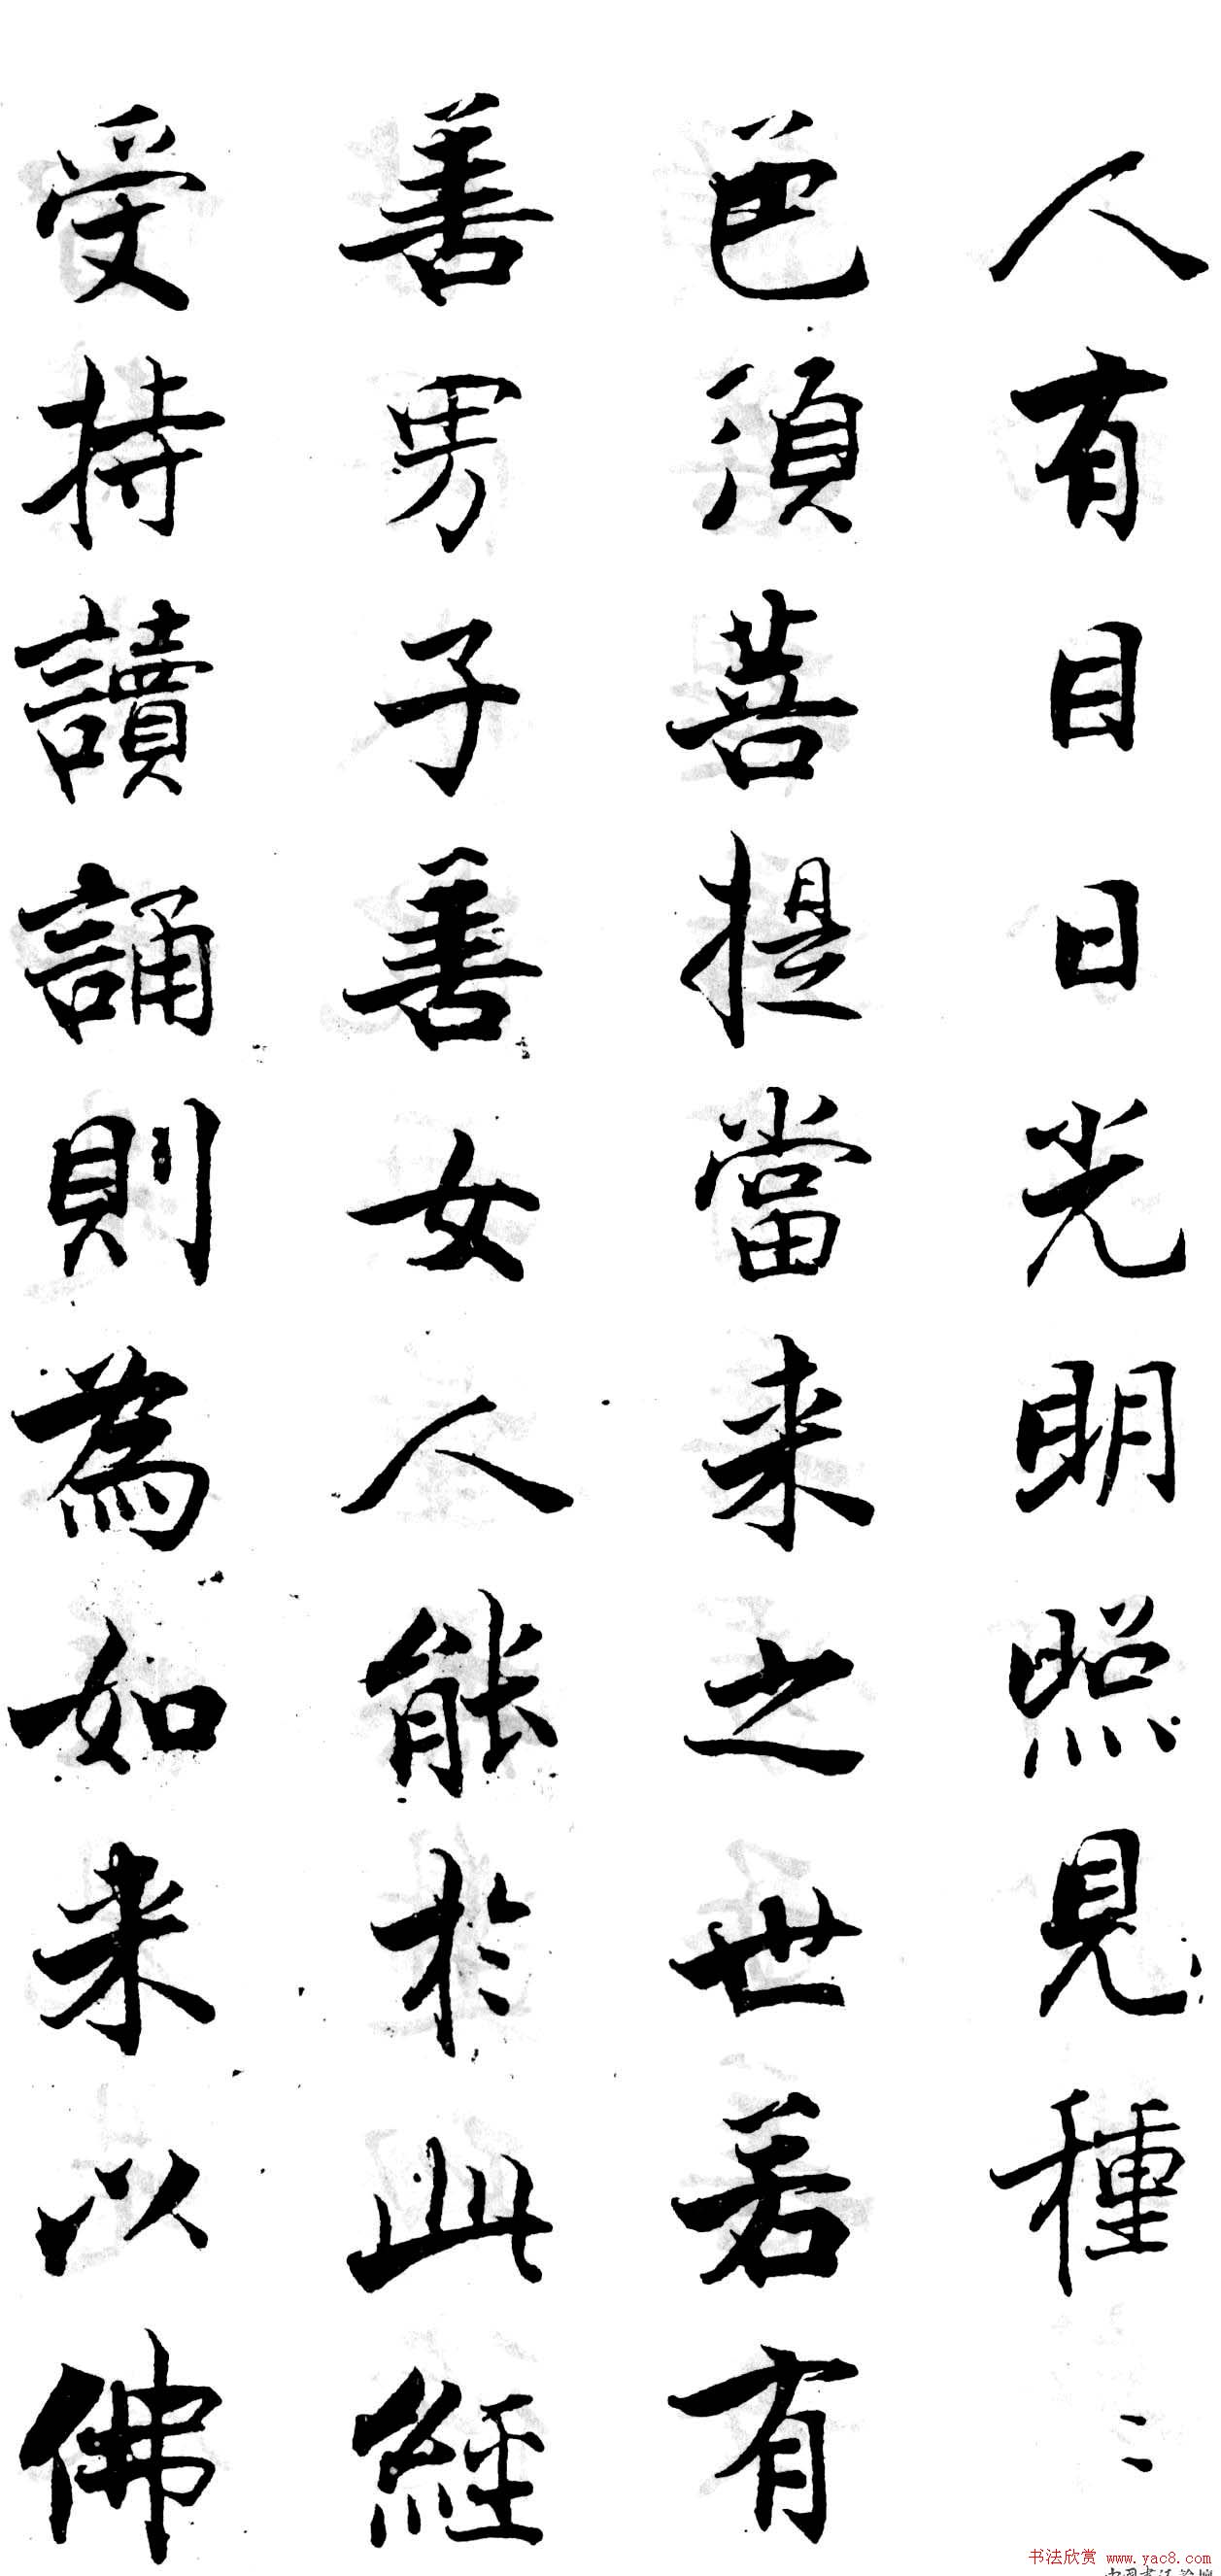 人有目日光明照見種〻
色須菩提當来之世若有
善男子善女人能於此經
受持讀誦則為如来以佛
书法欣赏 www.yac8.com